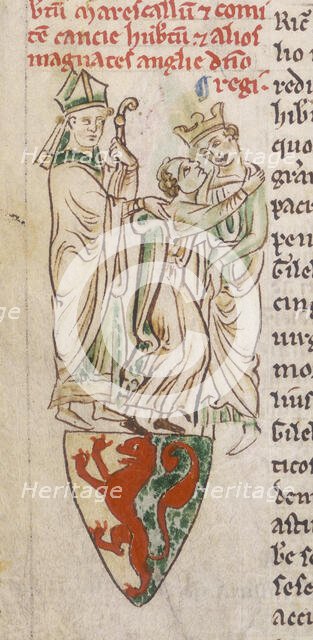 btm̄ marescallū & comi
tē cancie hubtū & alios
magnates anglie dn̄o
regi.
Ric̄
lio
redi
hibi
quo
gr̄a
paci
pen
Gile
cing
uirg
mo
lius
Gile
ticos
dem
astu
be se
sese
accu
Heritage
Heritage
Heritage
Heritage
Heritage
Heritage